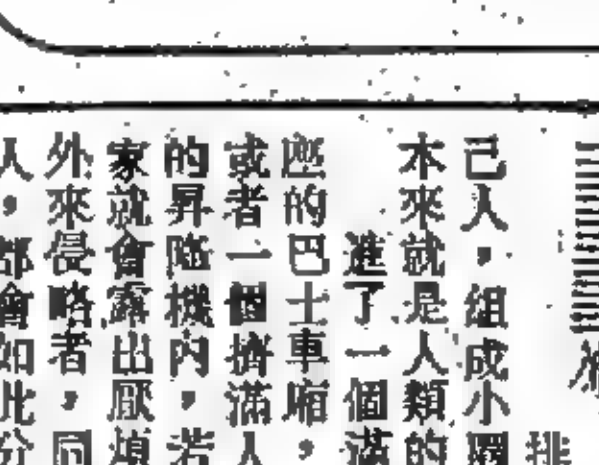 排
己人，組成小圈
本來就是人類的
進了一個滿
座的巴士車廂，
或者一個擠滿人
的昇降機內，若
家就會露出厭煩
外來侵略者，同
人，都會如此分